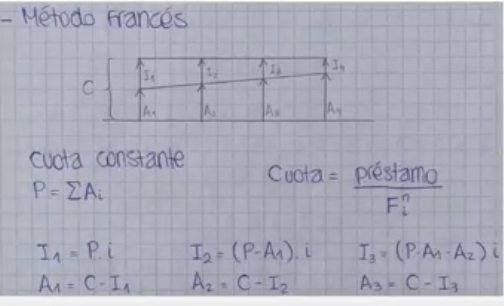 - Método Francés
C I₁ I₂ I₃ I₄
A₁ A₂ A₃ A₄
cuota constante
P = ΣAᵢ
Cuota = préstamo
Fᵢⁿ
I₁ = P.i I₂ = (P-A₁).i I₃ = (P-A₁-A₂)i
A₁ = C-I₁ A₂ = C-I₂ A₃ = C-I₃